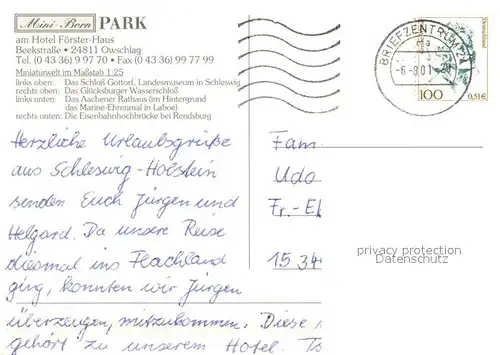 Mini-Born PARK
am Hotel Förster-Haus
Beekstraße • 24811 Owschlag
Tel. (0 43 36) 9 97 70 • Fax (0 43 36) 99 77 99
Miniaturwelt im Maßstab 1:25
links oben: Das Schloß Gottorf, Landesmuseum in Schleswig
rechts oben: Das Glücksburger Wasserschloß
links unten: Das Aachener Rathaus (im Hintergrund
das Marine-Ehrenmal in Laboe)
rechts unten: Die Eisenbahnhochbrücke bei Rendsburg
Herzliche Urlaubsgrüße
aus Schleswig-Holstein
senden Euch Jürgen und
Helgard. Da unsere Reise
diesmal ins Flachland
ging, konnten wir Jürgen
überzeugen, mitzukommen. Diese
gehört zu unserem Hotel.
BRIEFZENTRUM
Deutschland
100
0,51€
Fam
Udo
Fr.-
15 34
privacy protection
Datenschutz